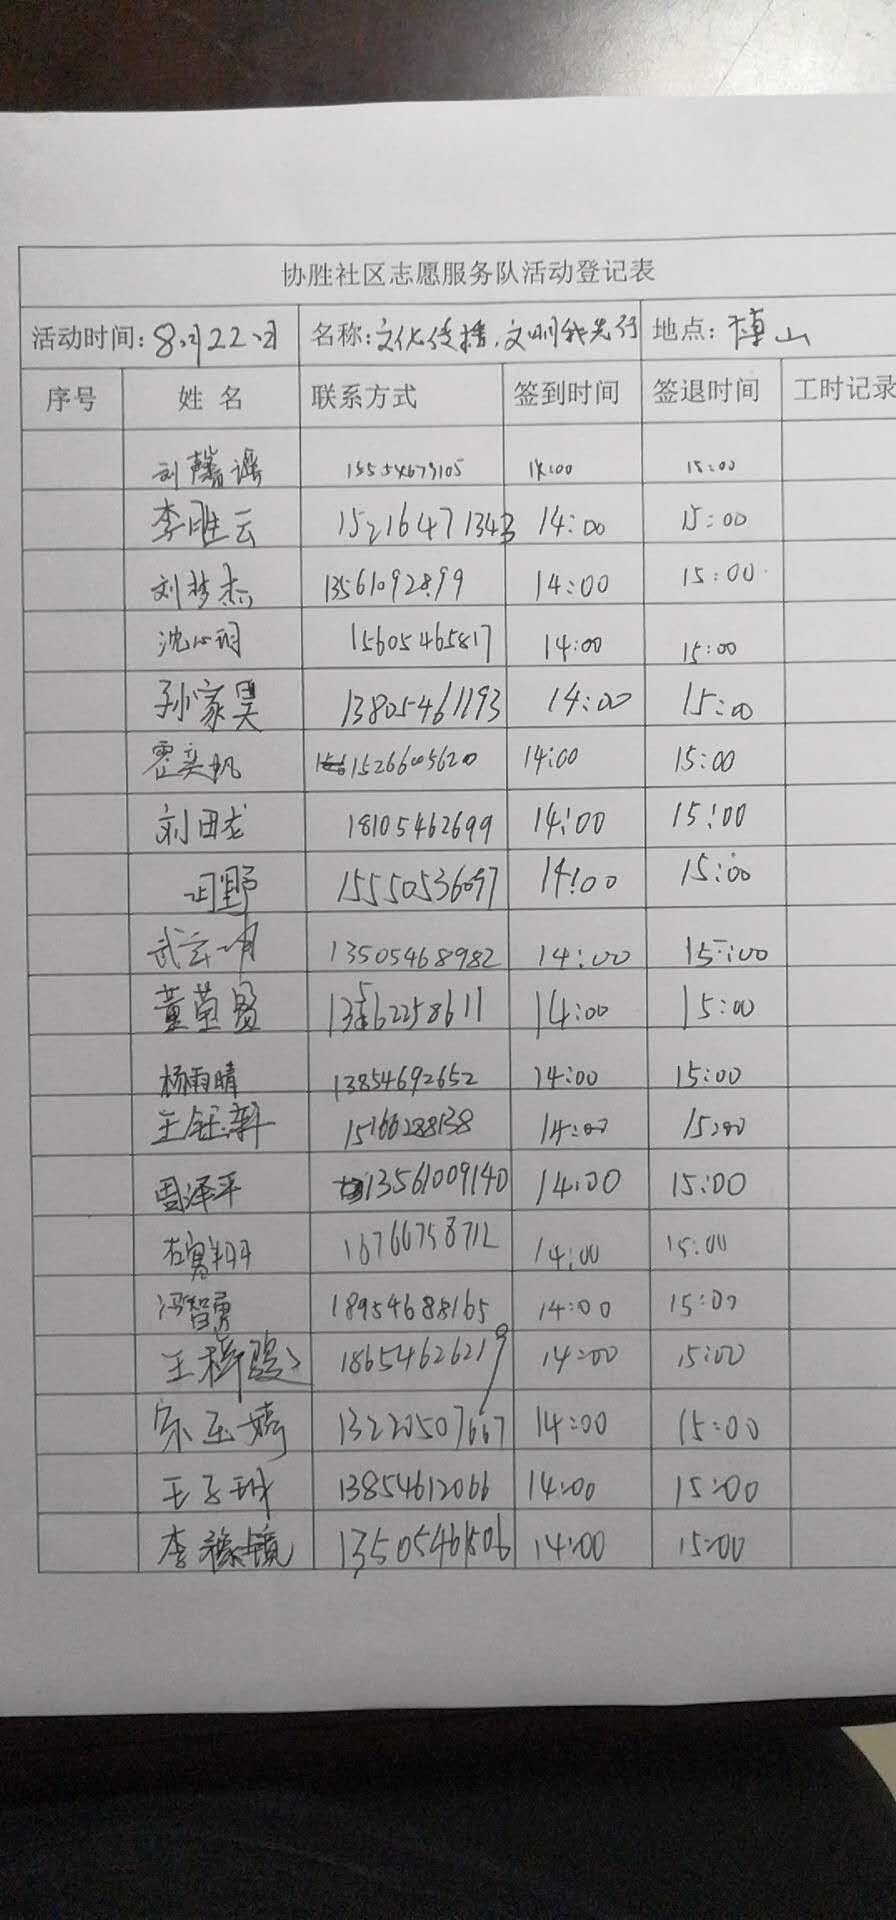 协胜社区志愿服务队活动登记表
活动时间:8月22日 名称:文化传播,文明我先行 地点:博山
序号 姓名 联系方式 签到时间 签退时间 工时记录
刘馨谣 15554679105 14:00 15:00
李胜云 15216471343 14:00 15:00
刘梦杰 13561092899 14:00 15:00
沈心玥 15605465817 14:00 15:00
孙家昊 13805461193 14:00 15:00
霍奕帆 15266005620 14:00 15:00
刘田龙 18105462699 14:00 15:00
15550536097 14:00 15:00
武云明 13505468982 14:00 15:00
董荣贤 13562258611 14:00 15:00
杨雨晴 13854692652 14:00 15:00
王钰新 15166288138 14:00 15:00
周泽平 13561009140 14:00 15:00
14:00 15:00
冯智勇 18954688165 14:00 15:00
王 18654626219 14:00 15:00
宋玉婷 13220507667 14:00 15:00
王子城 13854612066 14:00 15:00
李 14:00 15:00